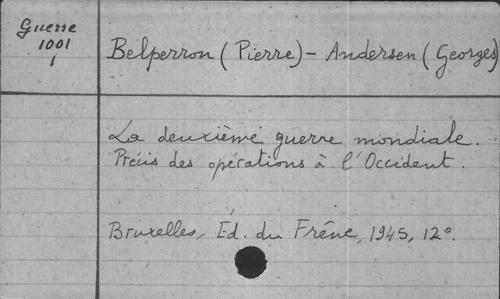 Guerre
1001
1
Belperron (Pierre) - Andersen (Georges)
La deuxième guerre mondiale.
Précis des opérations à l'Occident.
Bruxelles, Éd. du Frêne, 1945, 12°.